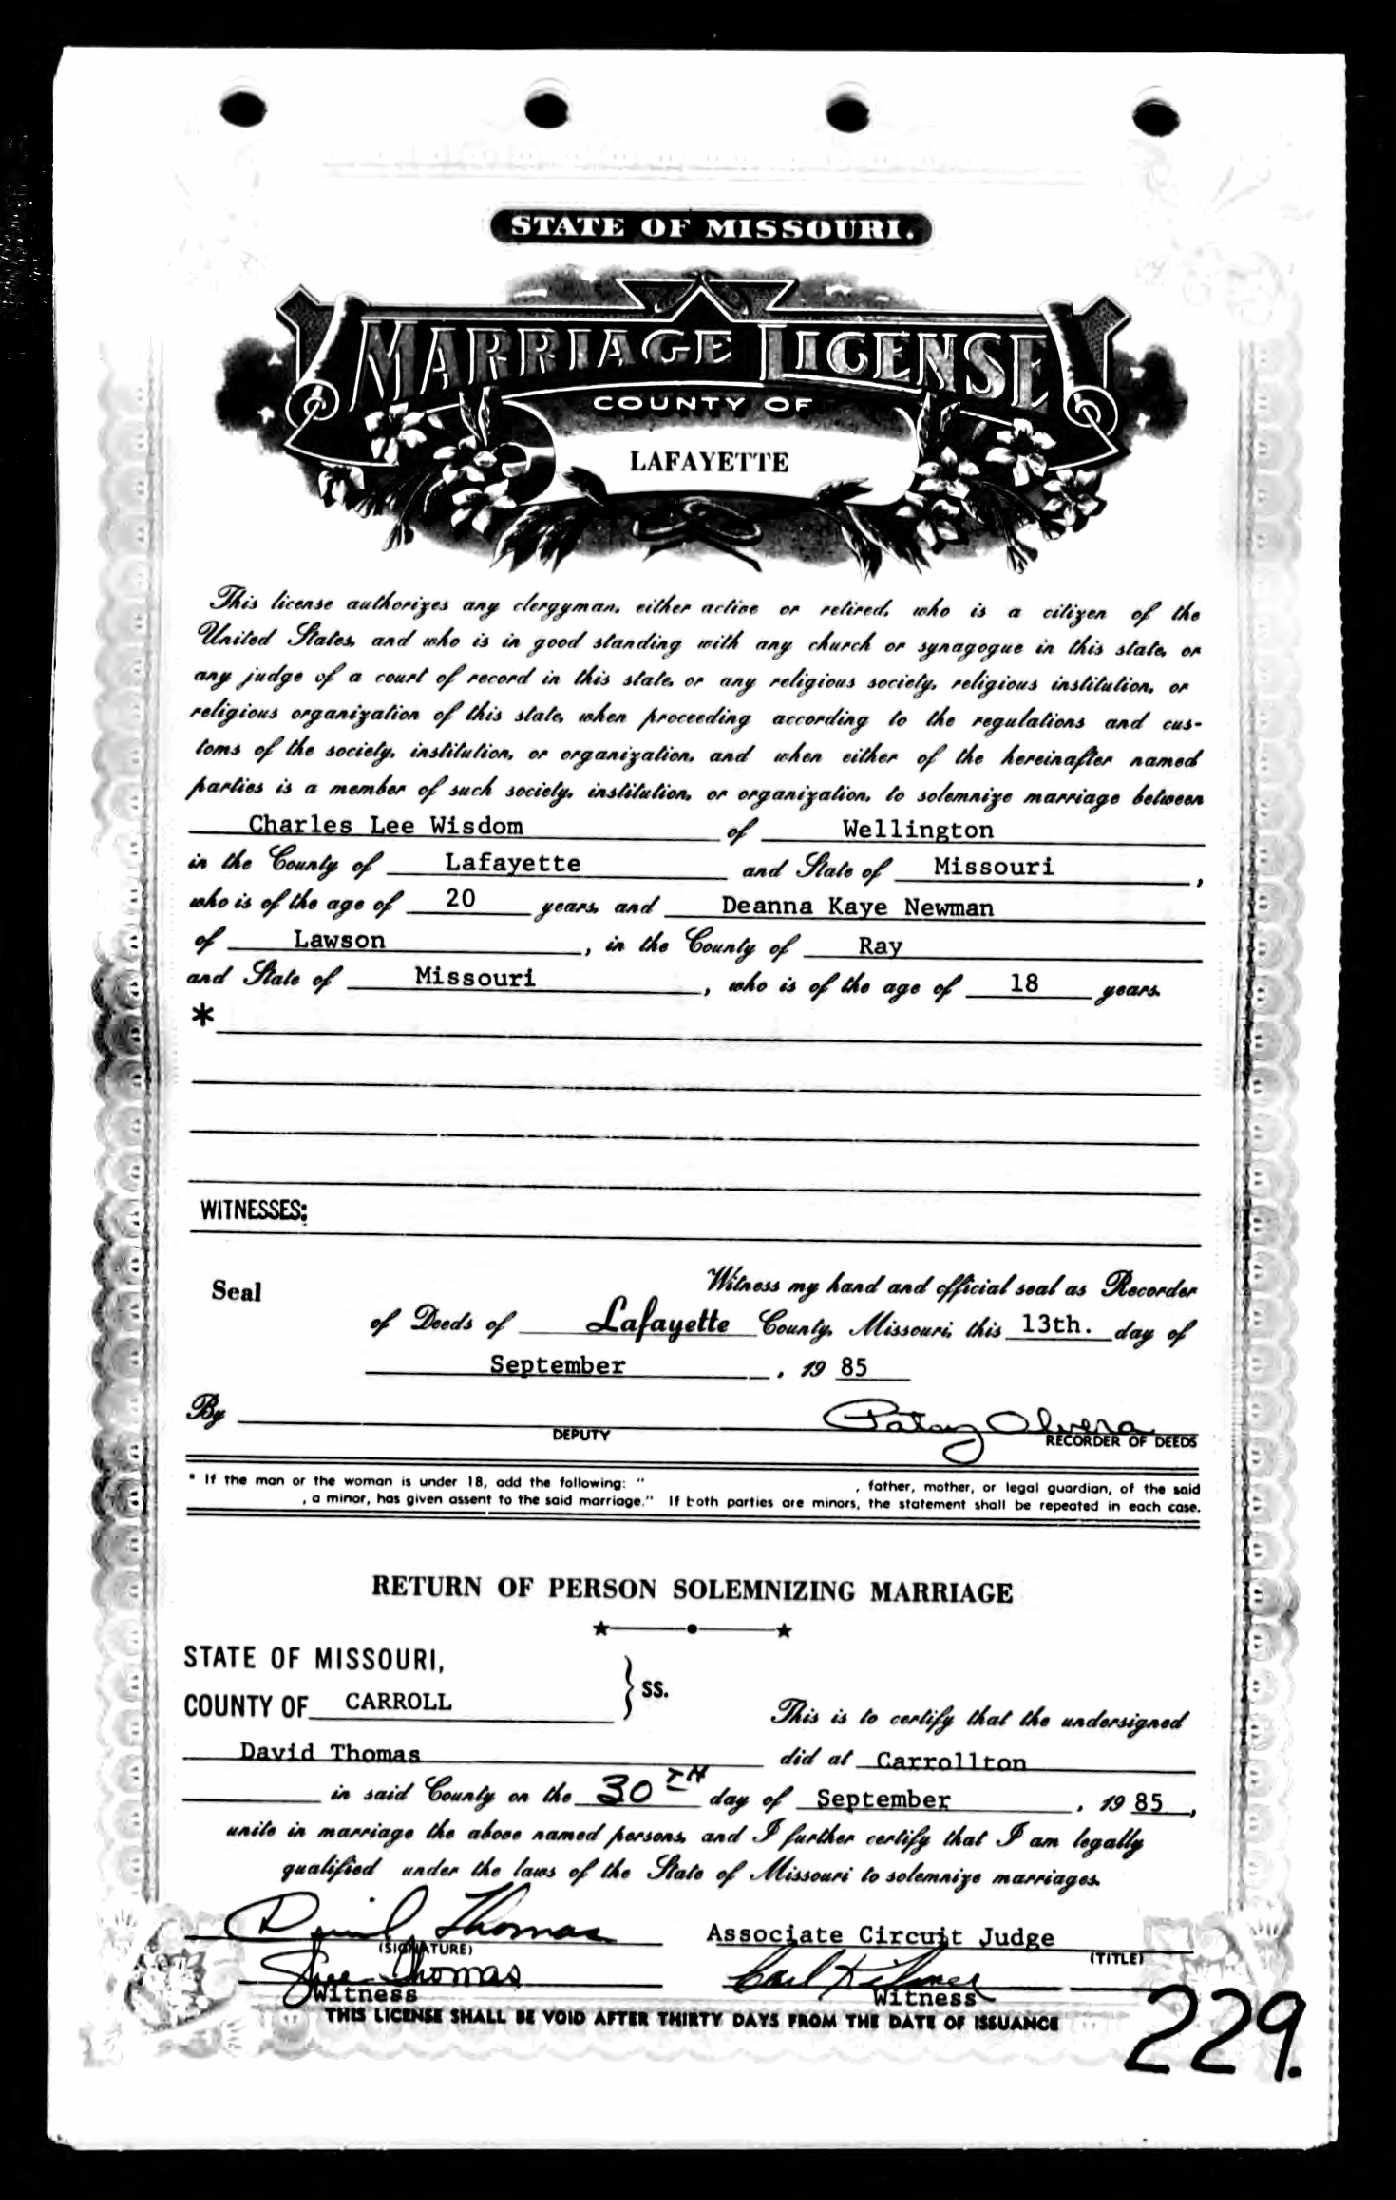 STATE OF MISSOURI.
MARRIAGE LICENSE
COUNTY OF
LAFAYETTE
This license authorizes any clergyman, either active or retired, who is a citizen of the
United States, and who is in good standing with any church or synagogue in this state, or
any judge of a court of record in this state, or any religious society, religious institution, or
religious organization of this state, when proceeding according to the regulations and cus-
toms of the society, institution, or organization, and when either of the hereinafter named
parties is a member of such society, institution, or organization, to solemnize marriage between
Charles Lee Wisdom of Wellington
in the County of Lafayette and State of Missouri,
who is of the age of 20 years, and Deanna Kaye Newman
of Lawson, in the County of Ray
and State of Missouri, who is of the age of 18 years.
*
WITNESSES:
Seal Witness my hand and official seal as Recorder
of Deeds of Lafayette County, Missouri, this 13th. day of
September, 19 85
By Patsy Olvera
DEPUTY RECORDER OF DEEDS
* If the man or the woman is under 18, add the following: " , father, mother, or legal guardian, of the said
, a minor, has given assent to the said marriage." If both parties are minors, the statement shall be repeated in each case.
RETURN OF PERSON SOLEMNIZING MARRIAGE
STATE OF MISSOURI,
COUNTY OF CARROLL } SS.
This is to certify that the undersigned
David Thomas did at Carrollton
in said County on the 30TH day of September, 19 85,
unite in marriage the above named persons, and I further certify that I am legally
qualified under the laws of the State of Missouri to solemnize marriages.
David Thomas Associate Circuit Judge
(SIGNATURE) (TITLE)
Thomas Carl
Witness Witness
THIS LICENSE SHALL BE VOID AFTER THIRTY DAYS FROM THE DATE OF ISSUANCE
229.